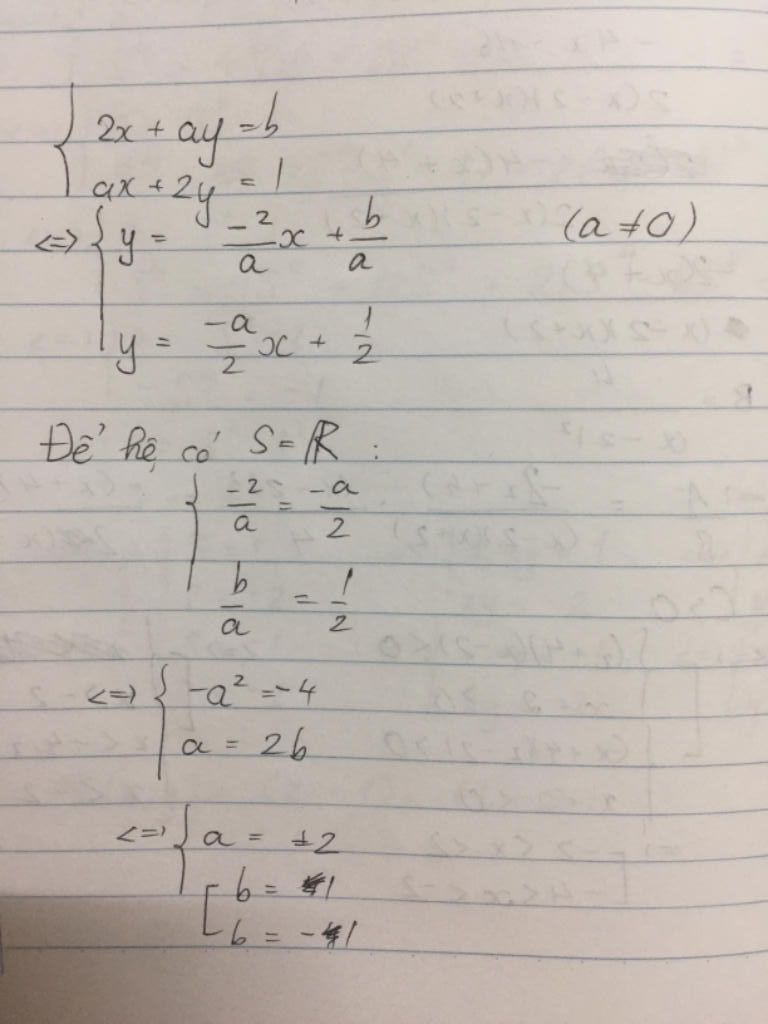 { 2x + ay = b
ax + 2y = 1
<=> { y = -2/a x + b/a (a ≠ 0)
y = -a/2 x + 1/2
Để hệ có S = ℝ :
{ -2/a = -a/2
b/a = 1/2
<=> { -a² = -4
a = 2b
<=> { a = ±2
[ b = 1
b = -1